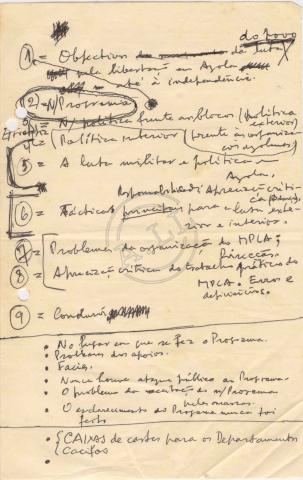 do povo
1 = Objectivo da luta
pela libertação em Angola
até à independência.
2) = N/ Programa
= N/ política frente aos blocos (política exterior)
4 = (Política interior (frente às organizações angolanas)
5 = A luta militar e política em Angola.
Responsabilidade: Apreciação crítica
6 = Tácticas para a luta exterior e interior.
7 = Problemas da organização do MPLA;
Direcção.
8 = Apreciação crítica do trabalho prático do
MPLA. Erros e
deficiências.
9 = Conclusões
• No lugar em que se fez o Programa.
• Problemas dos apoios.
• Facies.
• Nunca houve ataque público ao Programa.
• O problema da aceitação do n/ Programa
pelas massas.
• O esclarecimento do Programa nunca foi
feito
• {CAIXAS de cartas para os Departamentos
{Cacifos
•